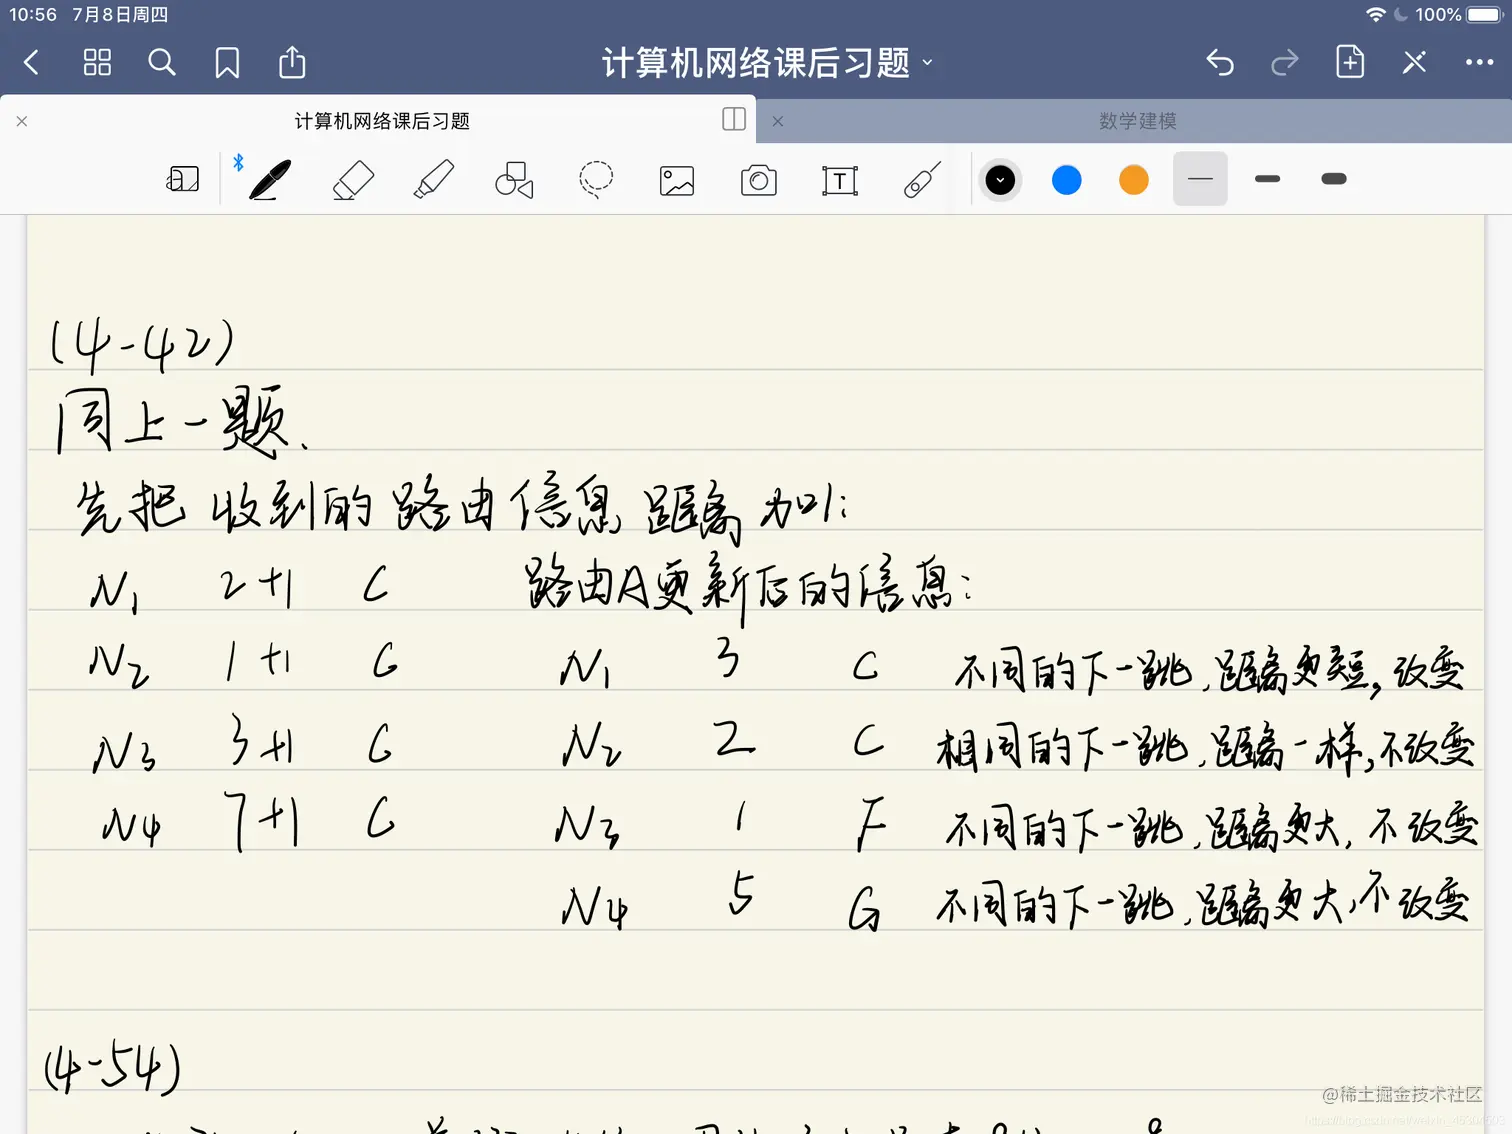 10:56 7月8日周四 100%
计算机网络课后习题
计算机网络课后习题
数学建模
(4-42)
同上一题.
先把 收到的路由信息 距离加1:
N1 2+1 C 路由A更新后的信息:
N2 1+1 C N1 3 C 不同的下一跳,距离更短,改变
N3 3+1 C N2 2 C 相同的下一跳,距离一样,不改变
N4 7+1 C N3 1 F 不同的下一跳,距离更大,不改变
N4 5 G 不同的下一跳,距离更大,不改变
(4-54)
@稀土掘金技术社区